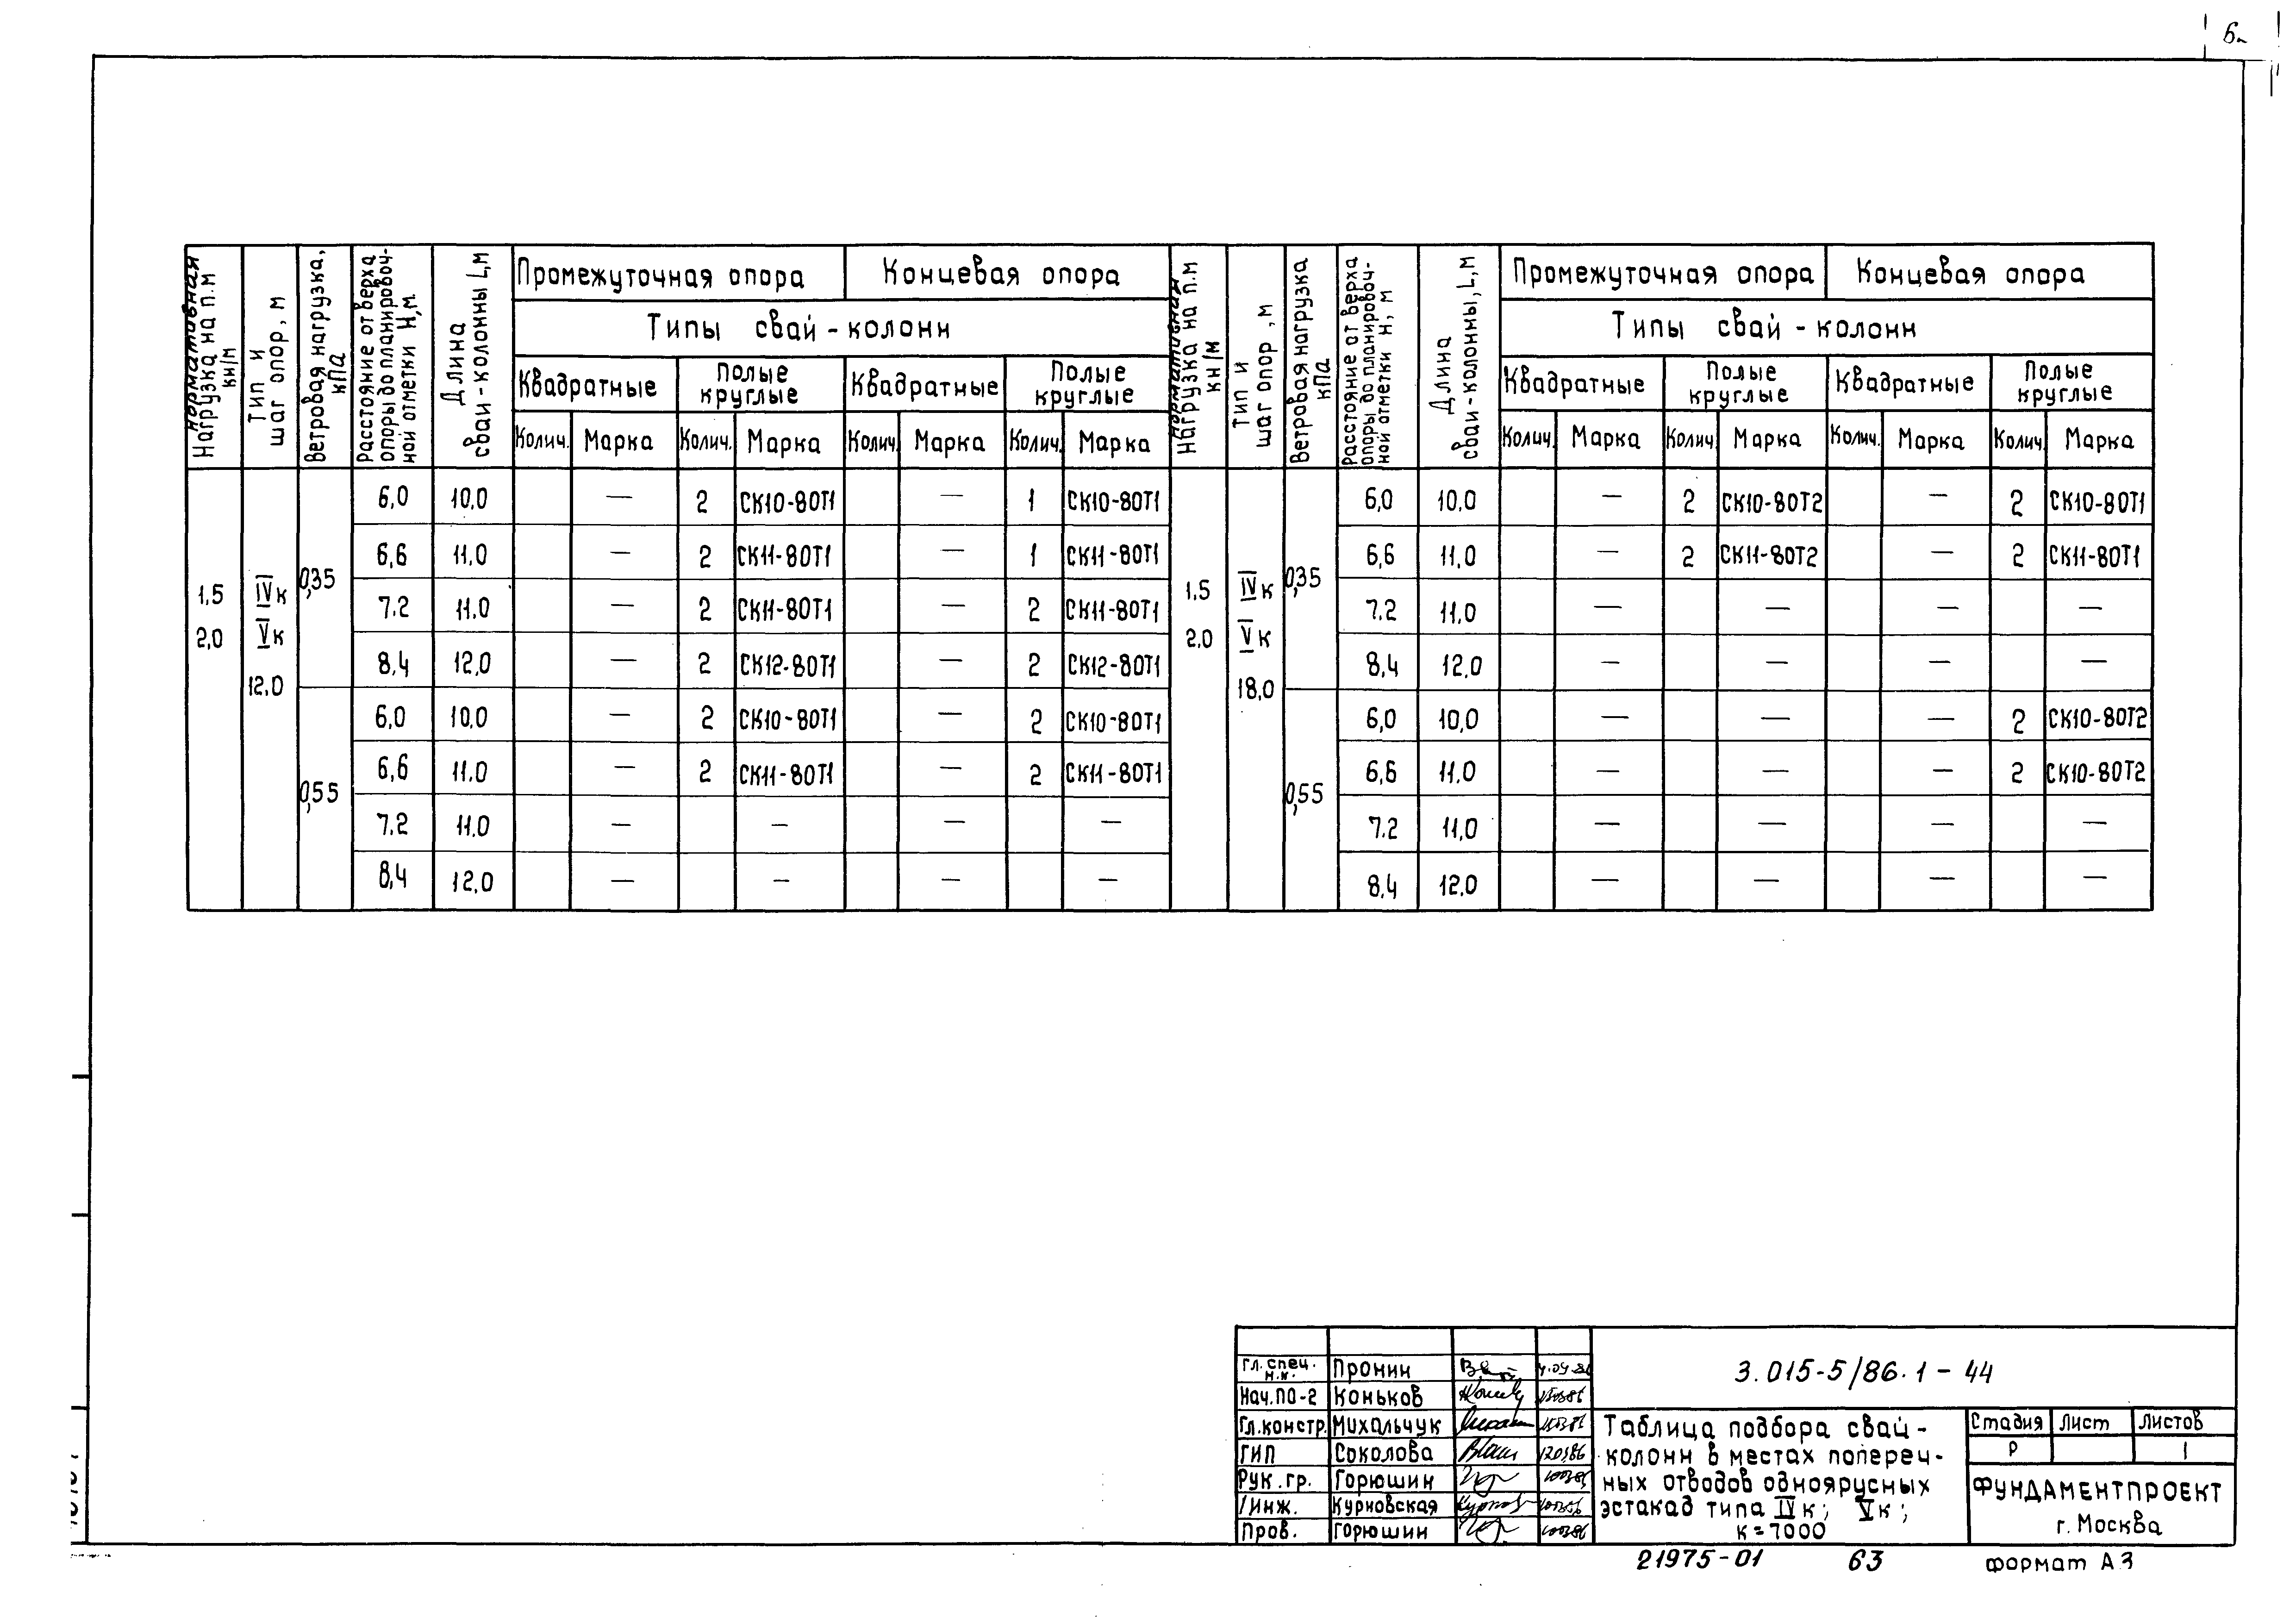 6
Нормативная нагрузка на п.м кн/м | Тип и шаг опор, м | Ветровая нагрузка, кПа | Расстояние от верха опоры до планировочной отметки Н,м | Длина сваи-колонны L,м | Промежуточная опора | Концевая опора | Нормативная нагрузка на п.м кн/м | Тип и шаг опор, м | Ветровая нагрузка кПа | Расстояние от верха опоры до планировочной отметки Н, м | Длина сваи-колонны, L, м | Промежуточная опора | Концевая опора
Типы свай-колонн | Типы свай-колонн
Квадратные | Полые круглые | Квадратные | Полые круглые | Квадратные | Полые круглые | Квадратные | Полые круглые
Колич. | Марка | Колич. | Марка | Колич. | Марка | Колич. | Марка | Колич. | Марка | Колич. | Марка | Колич. | Марка | Колич. | Марка
6,0 | 10,0 | — | 2 | СК10-80Т1 | — | 1 | СК10-80Т1 | 6,0 | 10,0 | — | 2 | СК10-80Т2 | — | 2 | СК10-80Т1
6,6 | 11.0 | — | 2 | СК11-80Т1 | — | 1 | СК11-80Т1 | 6,6 | 11,0 | — | 2 | СК11-80Т2 | — | 2 | СК11-80Т1
1,5 2,0 | IVк Vк 12.0 | 0,35 | 7.2 | 11.0 | — | 2 | СК11-80Т1 | — | 2 | СК11-80Т1 | 1,5 2,0 | IVк Vк 18,0 | 0,35 | 7.2 | 11,0 | — | — | — | —
8,4 | 12,0 | — | 2 | СК12-80Т1 | — | 2 | СК12-80Т1 | 8,4 | 12,0 | — | — | — | —
6,0 | 10,0 | — | 2 | СК10-80Т1 | — | 2 | СК10-80Т1 | 6,0 | 10,0 | — | — | — | 2 | СК10-80Т2
0,55 | 6,6 | 11.0 | — | 2 | СК11-80Т1 | — | 2 | СК11-80Т1 | 0,55 | 6,6 | 11.0 | — | — | — | 2 | СК10-80Т2
7.2 | 11.0 | — | — | — | — | 7.2 | 11,0 | — | — | — | —
8,4 | 12.0 | — | — | — | — | 8,4 | 12,0 | — | — | — | —
Гл. спец. н.к. Пронин
Нач.ПО-2 Коньков
Гл.констр. Михальчук
ГИП Соколова
Рук.гр. Горюшин
Инж. Курновская
Пров. Горюшин
3.015-5/86.1-44
Таблица подбора свай-
колонн в местах попереч-
ных отводов одноярусных
эстакад типа IVк; Vк;
к=7000
Стадия Лист Листов
Р 1
ФУНДАМЕНТПРОЕКТ
г. Москва
21975-01 63 формат А3